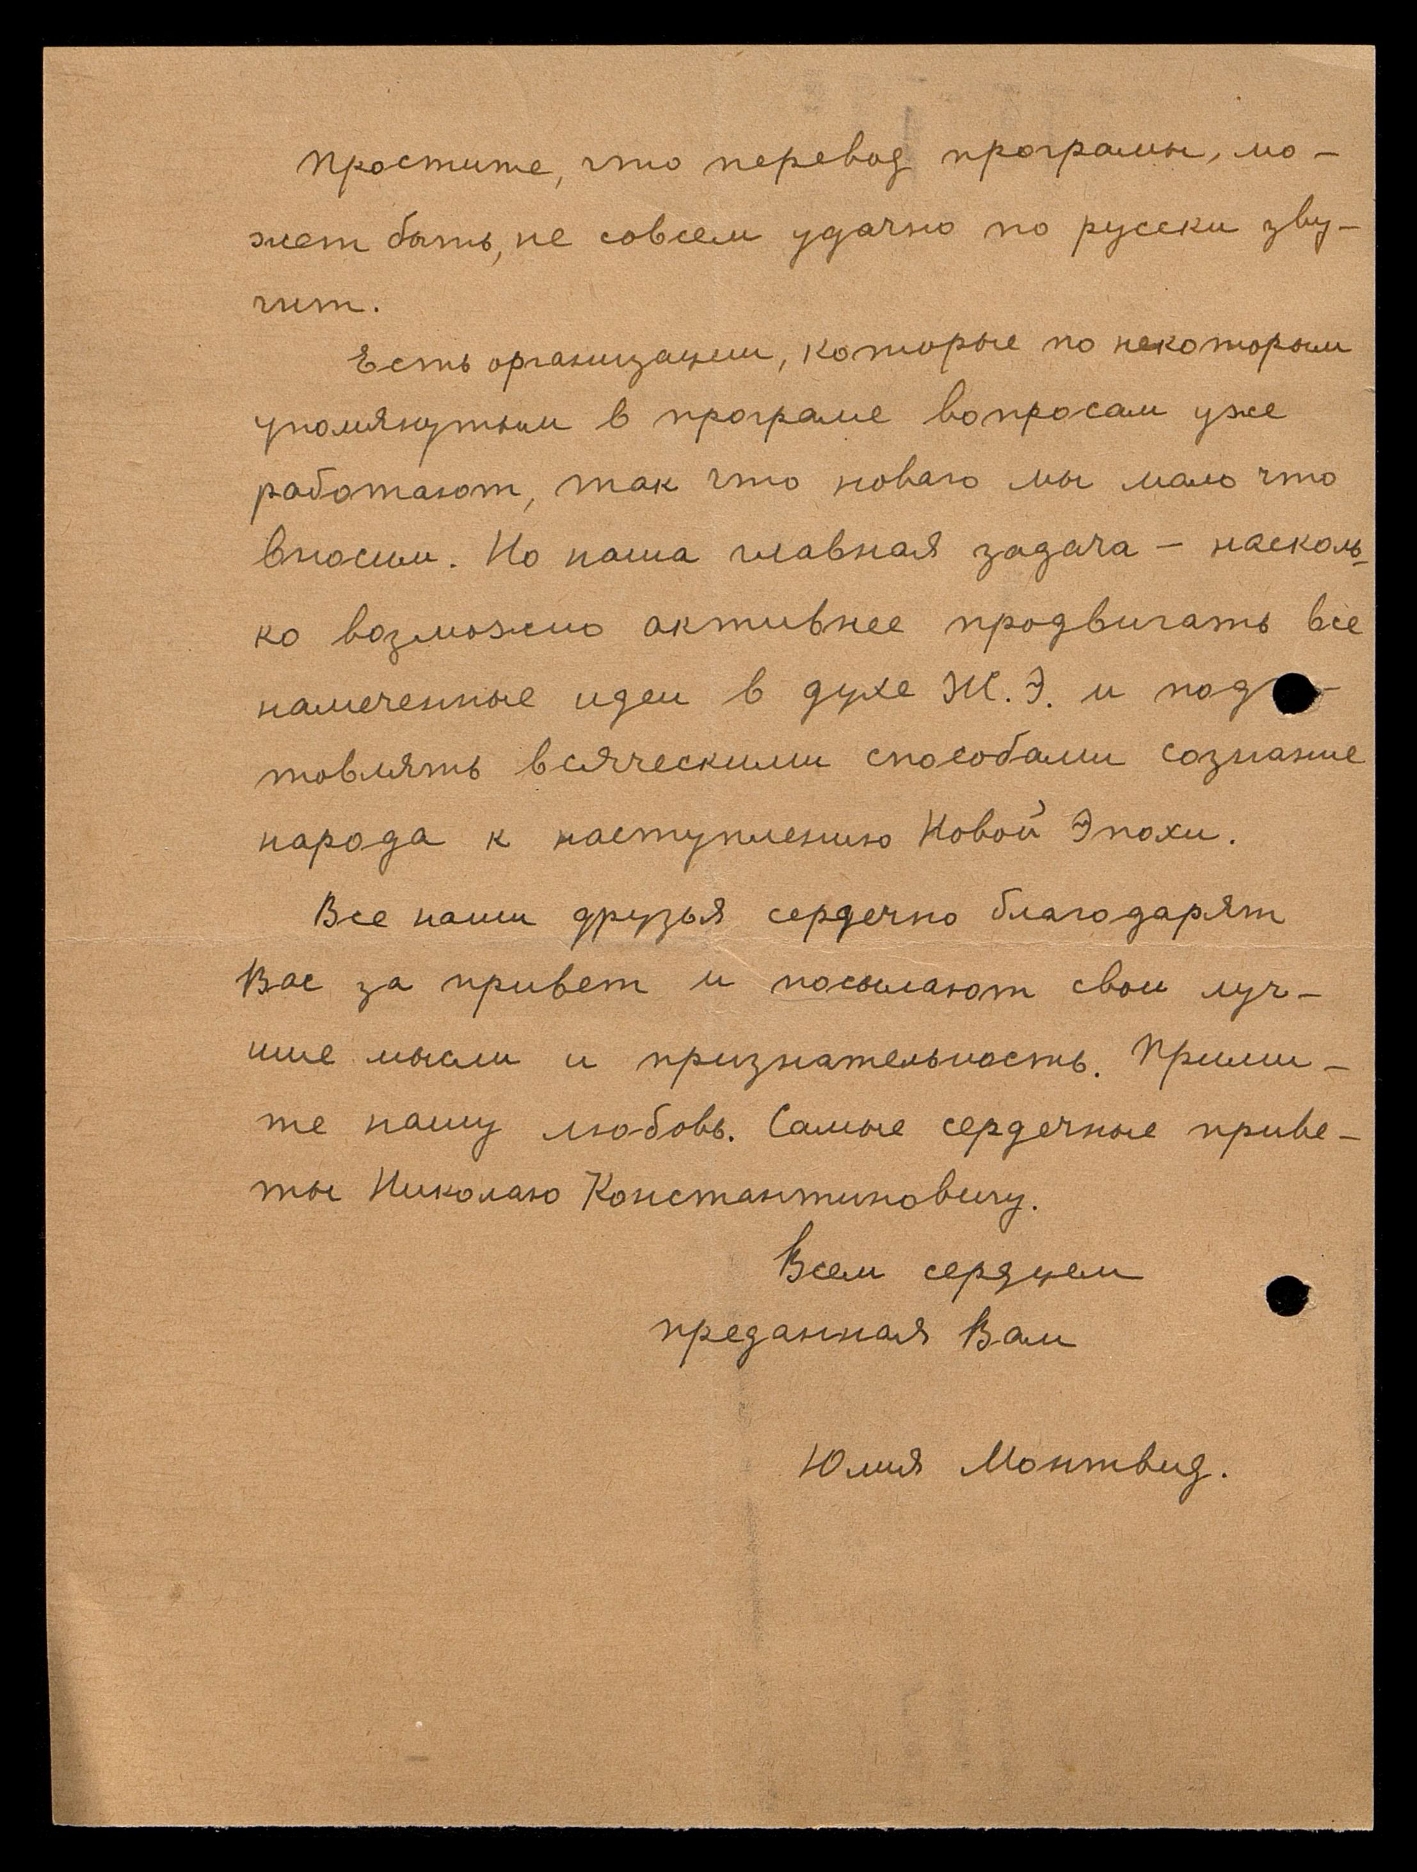 Простите, что перевод програмы, мо-
жет быть, не совсем удачно по русски зву-
чит.
Есть организации, которые по некоторым
упомянутым в програме вопросам уже
работают, так что новаго мы мало что
вносим. Но наша главная задача - насколь-
ко возможно активнее продвигать все
намеченные идеи в духе Ж.Э. и под
товлять всяческими способами сознание
народа к наступлению Новой Эпохи.
Все наши друзья сердечно благодарят
Вас за привет и посылают свои луч-
шие мысли и признательность. Прими-
те нашу любовь. Самые сердечные приве-
ты Николаю Константиновичу.
Всем сердцем
преданная Вам
Юлия Монтвид.